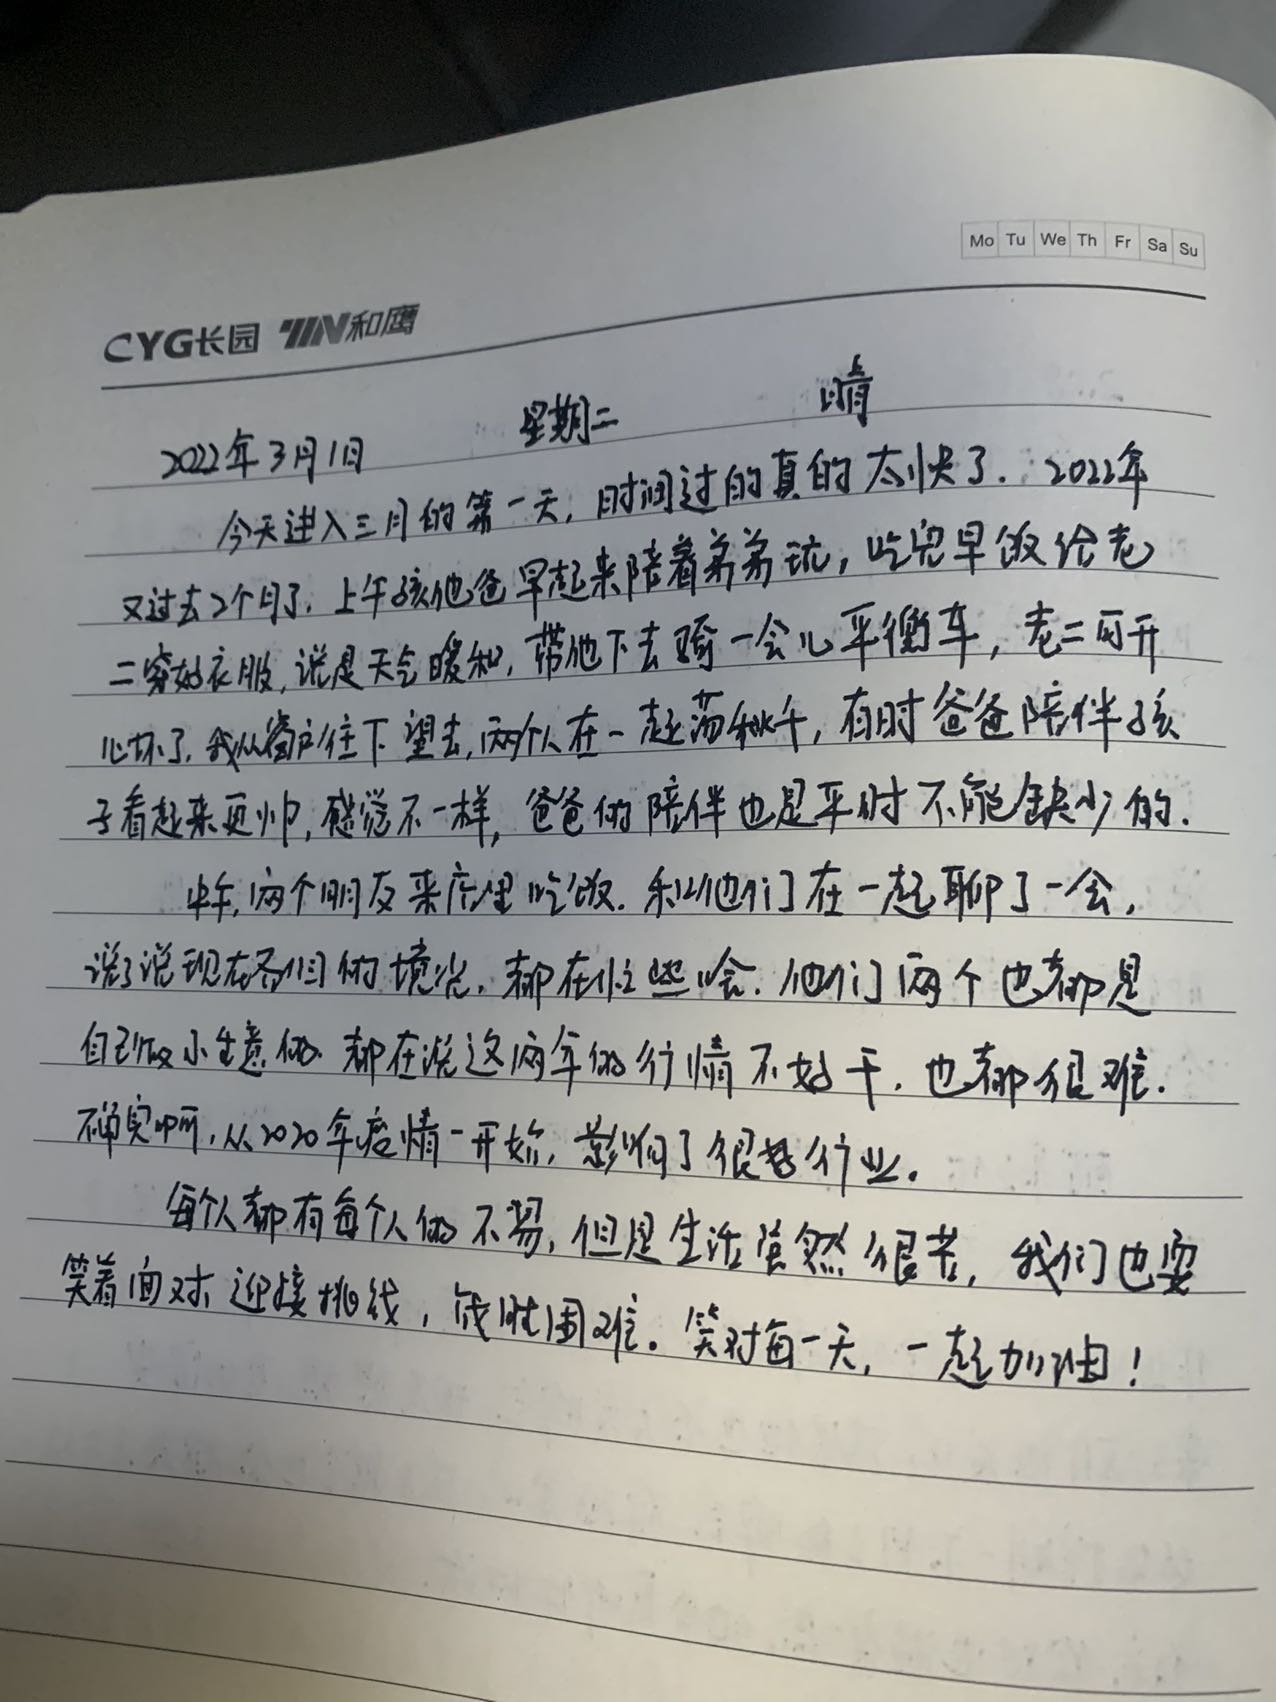 Mo Tu We Th Fr Sa Su
CYG长园 和鹰
2022年3月1日 星期二 晴
今天进入三月的第一天，时间过的真的太快了．2022年
又过去2个月了．上午孩他爸早起来陪着弟弟玩，吃完早饭给老
二穿好衣服，说是天气暖和，带他下去骑一会儿平衡车，老二可开
心坏了．我从窗户往下望去，两个人在一起荡秋千，有时爸爸陪伴孩
子看起来更帅，感觉不一样，爸爸的陪伴也是平时不能缺少的．
中午，两个朋友来店里吃饭．和他们在一起聊了一会，
说了说现在各自的境况．都在忙些啥．他们两个也都是
自己做小生意的．都在说这两年的行情不好干．也都很难．
确实啊，从2020年疫情一开始，影响了很多行业．
每个人都有每个人的不易，但是生活虽然很苦，我们也要
笑着面对，迎接挑线，战胜困难。笑对每一天，一起加油！